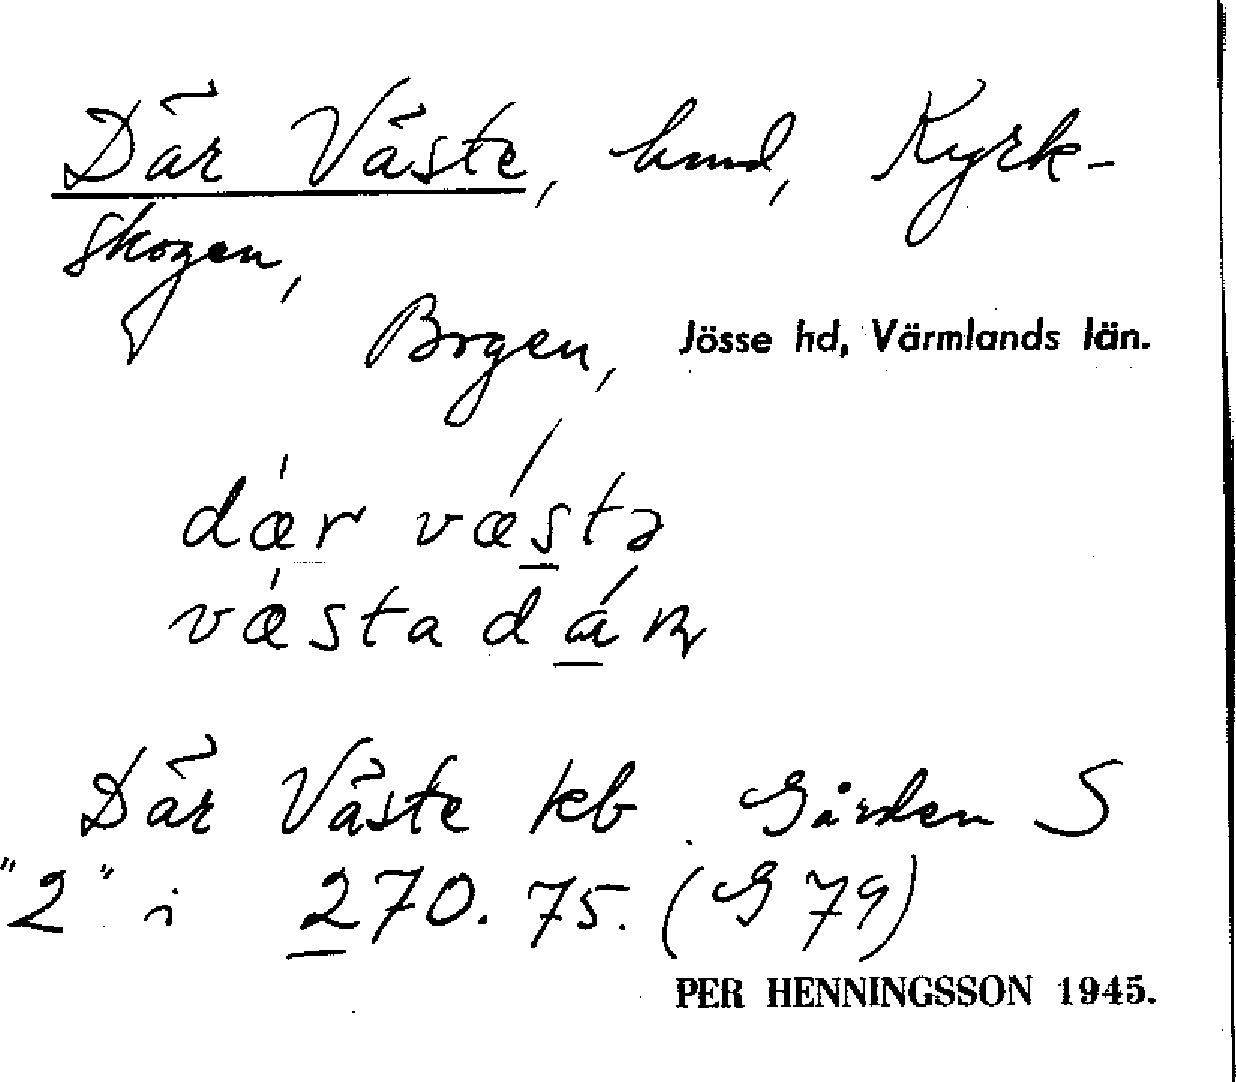 Där Väste, hmd, Kyrk-
skogen,
Bogen, Jösse hd, Värmlands län.
dæ̀r vǽstə
væ̀stadǽn
Där Väste kb. Gården S
"2" i 270.75. (G 79)
PER HENNINGSSON 1945.